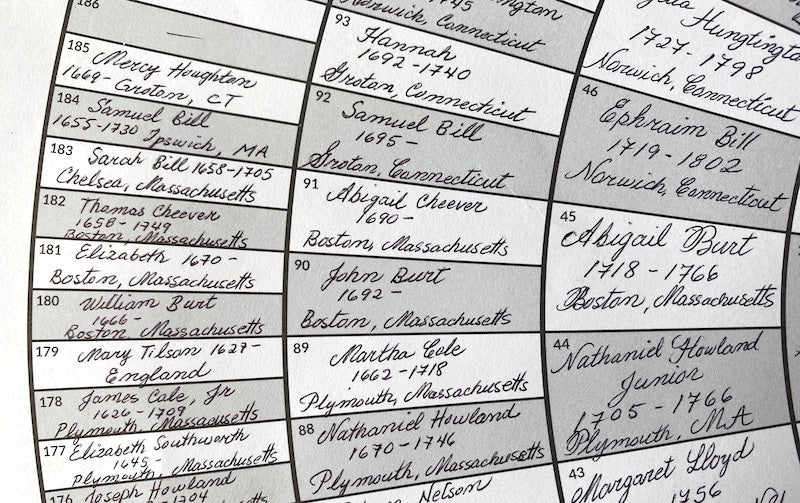 186
—
185
Mercy Houghton
1669- Groton, CT
184
Samuel Bill
1655-1730 Ipswich, MA
183
Sarah Bill 1658-1705
Chelsea, Massachusetts
182
Thomas Cheever
1658-1749
Boston, Massachusetts
181
Elizabeth 1670-
Boston, Massachusetts
180
William Burt
1666-
Boston, Massachusetts
179
Mary Tilson 1627-
England
178
James Cole, Jr
1626-1709
Plymouth, Massachusetts
177
Elizabeth Southworth
1645-
Plymouth, Massachusetts
176
Joseph Howland
Norwich, Connecticut
93
Hannah
1692-1740
Groton, Connecticut
92
Samuel Bill
1695-
Groton, Connecticut
91
Abigail Cheever
1690-
Boston, Massachusetts
90
John Burt
1692-
Boston, Massachusetts
89
Martha Cole
1662-1718
Plymouth, Massachusetts
88
Nathaniel Howland
1670-1746
Plymouth, Massachusetts
Nelson
1727-1798
Norwich, Connecticut
46
Ephraim Bill
1719-1802
Norwich, Connecticut
45
Abigail Burt
1718-1766
Boston, Massachusetts
44
Nathaniel Howland
Junior
1705-1766
Plymouth, MA
43
Margaret Lloyd
1756